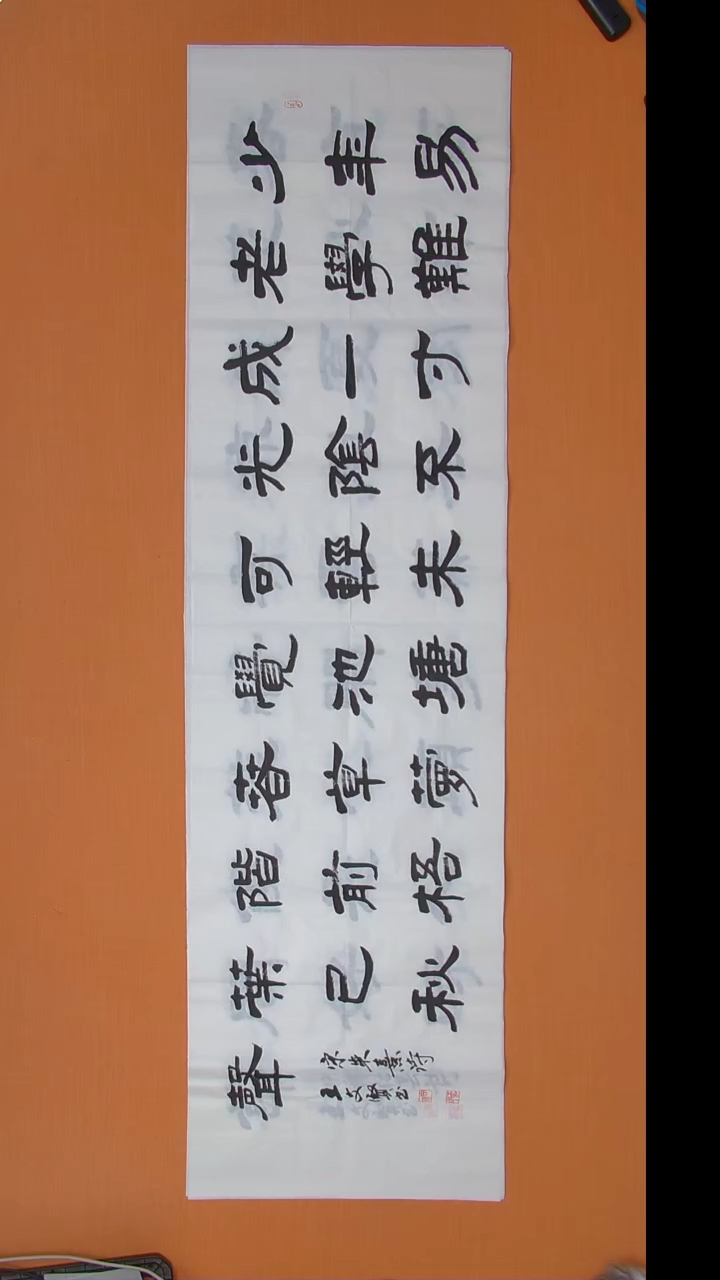 少年易
老學難
成一寸
光陰不
可輕未
覺池塘
春草夢
階前梧
葉已秋
聲
宋朱熹詩
王文書